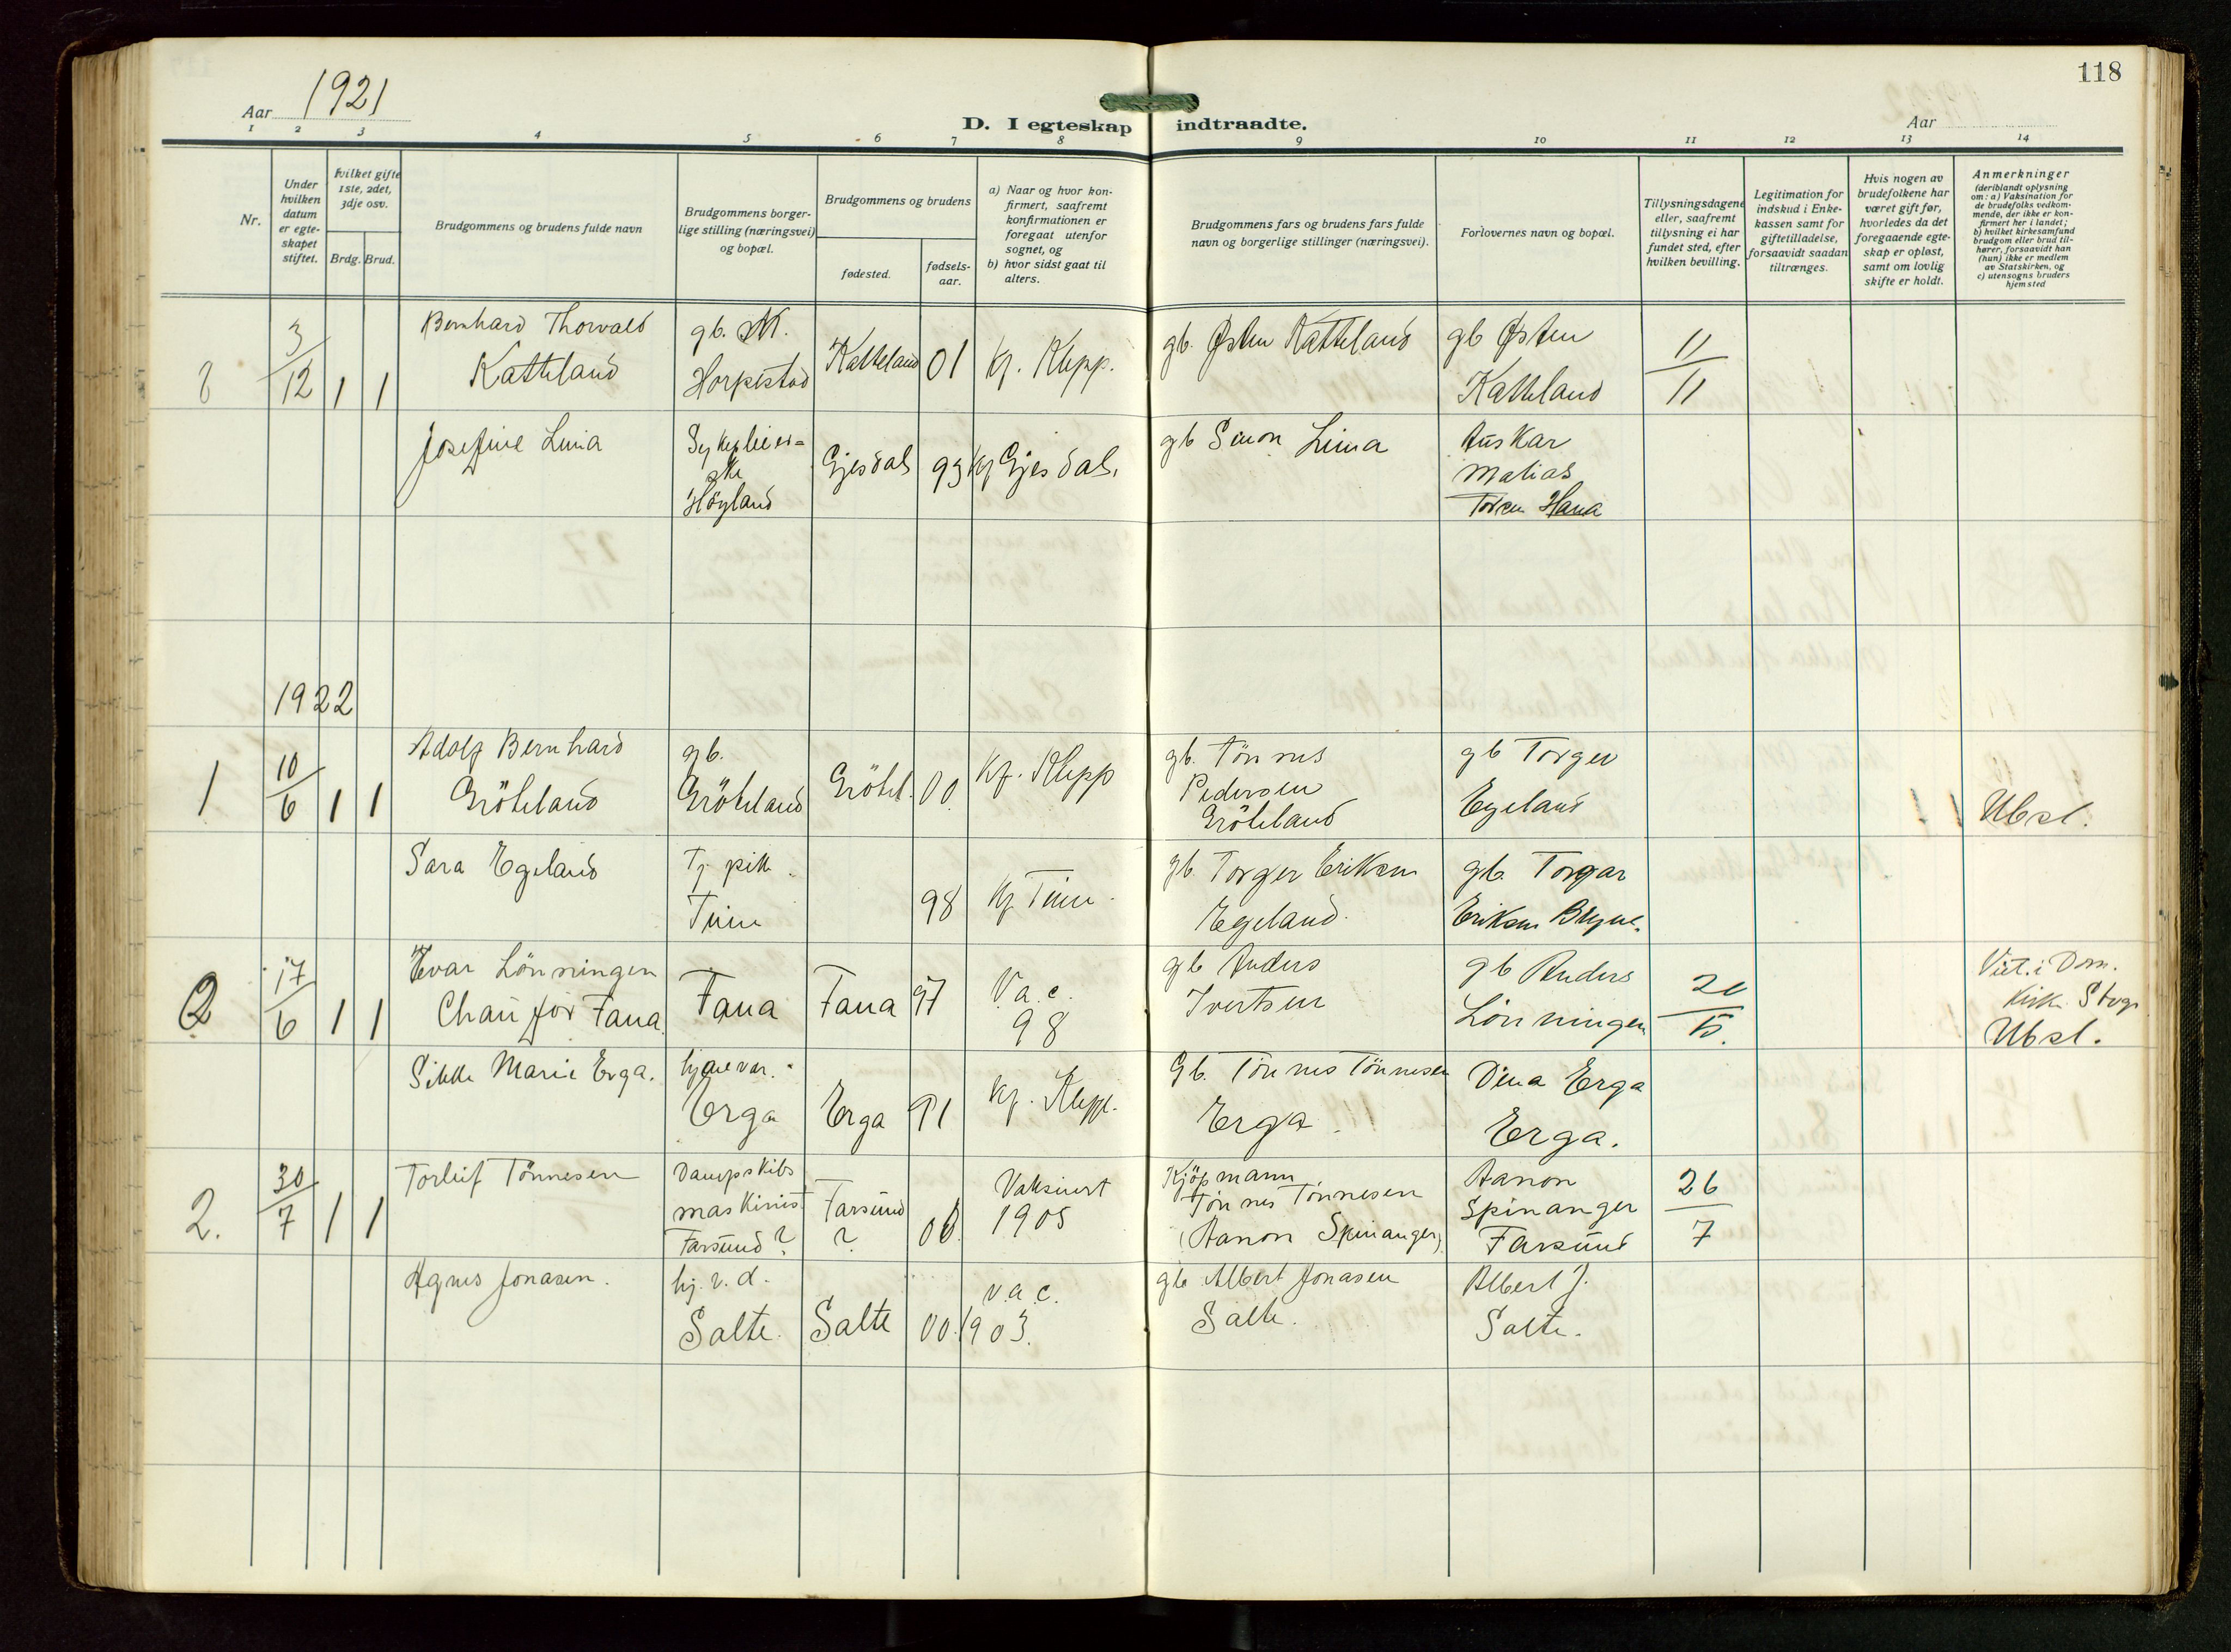 118
Aar 1921
D. I egteskap indtraadte.
Aar
1 2 3 4 5 6 7 8 9 10 11 12 13 14
Nr.
Under hvilken datum er egteskapet stiftet.
hvilket gifte 1ste, 2det, 3dje osv.
Brdg. Brud.
Brudgommens og brudens fulde navn
Brudgommens borgerlige stilling (næringsvei) og bopæl.
Brudgommens og brudens
fødested.
fødselsaar.
a) Naar og hvor konfirmert, saafremt konfirmationen er foregaat utenfor sognet, og
b) hvor sidst gaat til alters.
Brudgommens fars og brudens fars fulde navn og borgerlige stillinger (næringsvei).
Forlovernes navn og bopæl.
Tillysningsdagene eller, saafremt tillysning ei har fundet sted, efter hvilken bevilling.
Legitimation for indskud i Enkekassen samt for giftetilladelse, forsaavidt saadan tiltrænges.
Hvis nogen av brudefolkene har været gift før, hvorledes da det foregaaende egteskap er opløst, samt om lovlig skifte er holdt.
Anmerkninger
(deriblandt oplysning om: a) Vaksination for de brudefolks vedkommende, der ikke er konfirmert her i landet;
b) hvilket kirkesamfund brudgom eller brud tilhører, forsaavidt han (hun) ikke er medlem av Statskirken, og
c) utensogns bruders hjemsted
8 3/12 1 1 Bernhard Thorvald Katteland gb. Horpestad Katteland 01 kf. Klepp. gb. Østen Katteland gb Østen Katteland 11/11
Josefine Lima Sykepleierske Höyland Gjesdal 93 kf Gjesdal. gb Simon Lima Matias Hana
1922
1 10/6 1 1 Adolf Bernhard Gröteland gb. Gröteland Grötel. 00. kf. Klepp gb. Tönnes Pedersen Gröteland gb Torger Egeland Ubsl.
Sara Egeland Tj. pike. Time 98 kf Time. gb. Torger Eriksen Egeland. gb. Torger Eriksen Bryne.
2 17/6 1 1 Ivar Lönningen Chauffør Fana Fana Fana 97 Vac. 98 gb Anders Ivertsen gb Anders Lönningen 20/5. Viet. i Dom. kirk. Stvgr Ubsl.
Sikke Marie Erga. hjemmevær. Erga Erga 91 kf. Klepp. Gb. Tönnes Tönnesen Erga Dina Erga Erga.
2. 30/7 1 1 Torleif Tönnesen Dampskibs maskinist Farsund? Farsund ? 00. Vaksinert 1905 Kjöpmann Tönnes Tönnesen (Aanon Spinanger) Aanon Spinanger Farsund 26/7
Agnes Jonasen. hj. v. d. Salte. Salte 00. v.a.c. 1903. gb Albert Jonasen Salte. Albert J. Salte.